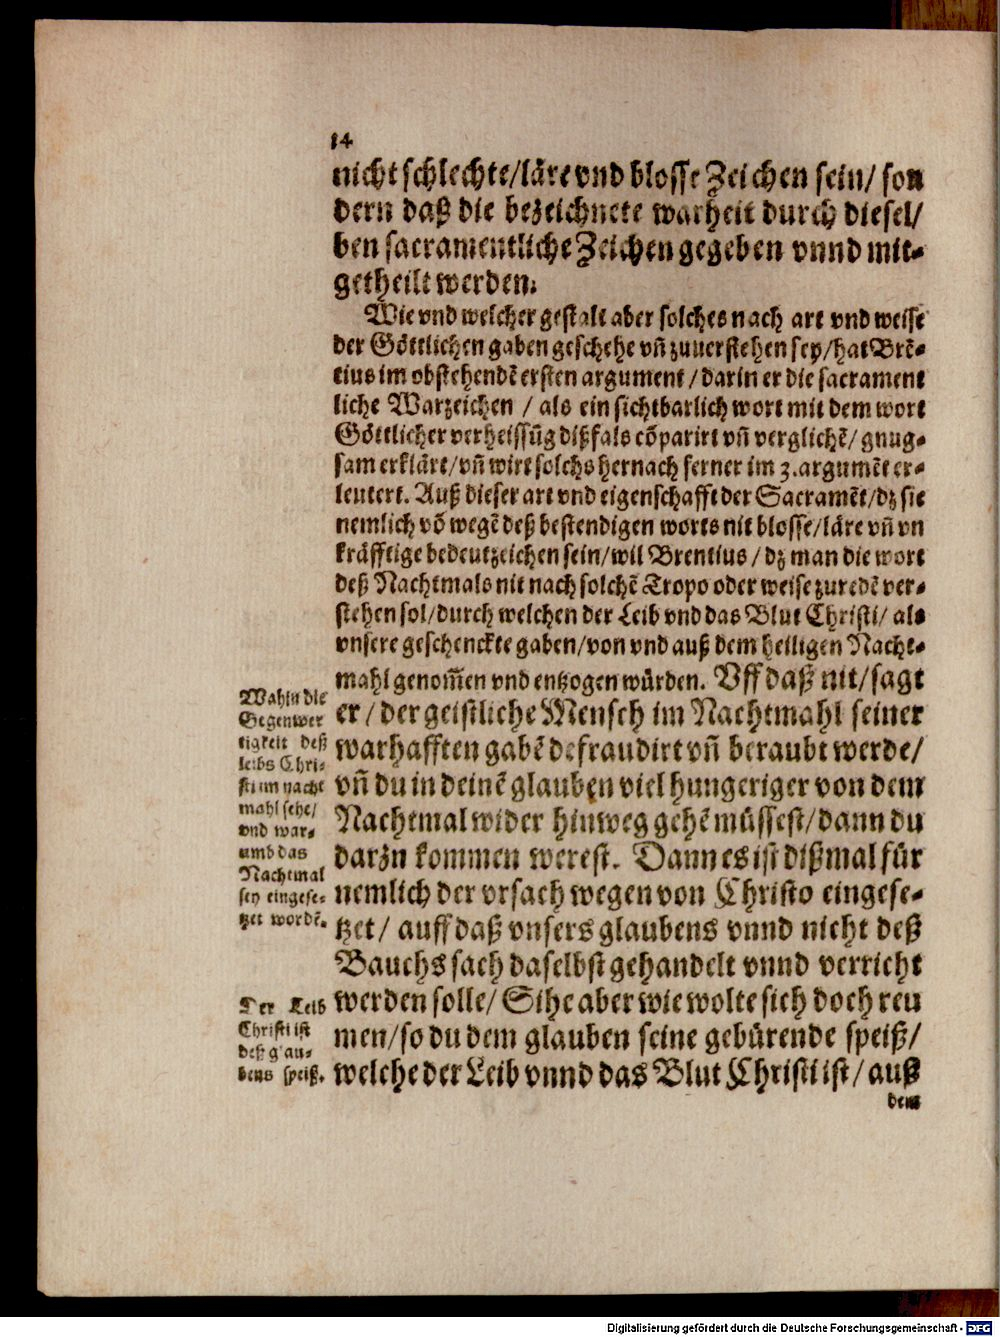 14
nicht schlechte/ läre vnd blosse Zeichen sein/ son
dern daß die bezeichnete warheit durch diesel/
ben sacramentliche Zeichen gegeben vnnd mit-
getheilt werden.
Wie vnd welcher gestalt aber solches nach art vnd weise
der Göttlichen gaben geschehe vñ zuuerstehen sey/ hat Brẽ-
tius im obstehendẽ ersten argument/ darin er die sacrament
liche Warzeichen / als ein sichtbarlich wort mit dem wort
Göttlicher verheissũg dißfals cõparirt vñ verglichẽ/ gnug-
sam erkläret/ vñ wirt solchs hernach ferner im 3. argumẽt er-
leutert. Auß dieser art vnd eigenschafft der Sacramẽt/ dz sie
nemlich võ wegẽ deß bestendigen worts nit blosse/ läre vñ vn
kräfftige bedeutzeichen sein/ wil Brentius / dz man die wort
deß Nachtmals nit nach solchẽ Tropo oder weise zuredẽ ver-
stehen sol/ durch welchen der Leib vnd das Blut Christi/ als
vnsere geschenckte gaben/ von vnd auß dem heiligen Nacht-
mahl genom̃en vnd entzogen würden. Vff daß nit/ sagt
er / der geistliche Mensch im Nachtmahl seiner
warhafften gabẽ defraudirt vñ beraubt werde/
vñ du in deinẽ glauben viel hungeriger von dem
Nachtmal wider hinweg gehẽ müssest/ dann du
darzu kommen werest. Dann es ist dißmal für
nemlich der vrsach wegen von Christo eingese-
tzet/ auff daß vnsers glaubens vnnd nicht deß
Bauchs sach daselbst gehandelt vnnd verricht
werden solle/ Sihe aber wie wolte sich doch reu
men/ so du dem glauben seine gebürende speiß/
welche der Leib vnnd das Blut Christi ist/ auß
dem
Wahin die
Gegenwer
tigkeit deß
leibs Chri-
sti im nacht
mahl sehe/
vnd war-
umb das
Nachtmal
sey eingese-
tzet wordẽ.
Der Leib
Christi ist
deß glau-
bens speiß.
Digitalisierung gefördert durch die Deutsche Forschungsgemeinschaft - DFG